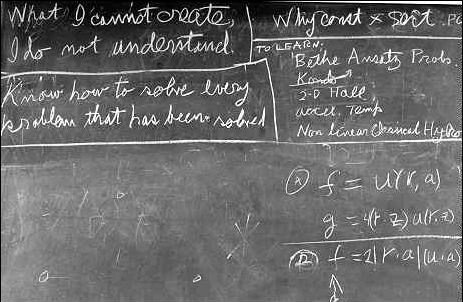 What I cannot create,
I do not understand.
Know how to solve every
problem that has been solved
Why const × sort . Po
TO LEARN:
Bethe Ansatz Probs.
Kondo
2-D Hall
accel. Temp
Non Linear Classical Hydro
(A) f = u(r, a)
g = 4(r·z) u(r, z)
(B) f = 2|r·a|(u·a)